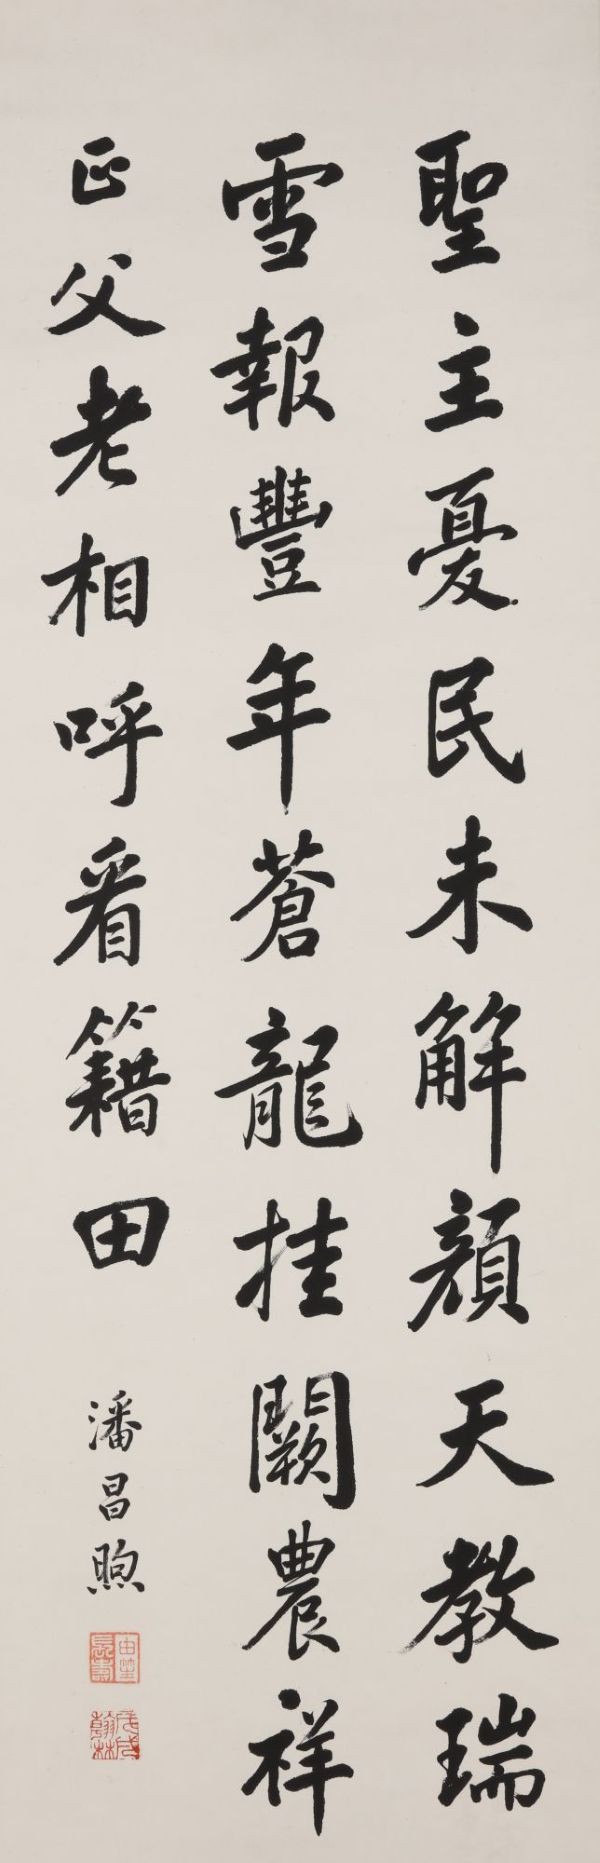 聖主憂民未解顏天教瑞
雪報豐年蒼龍挂闕農祥
正父老相呼看籍田
潘昌煦
戊戌翰林